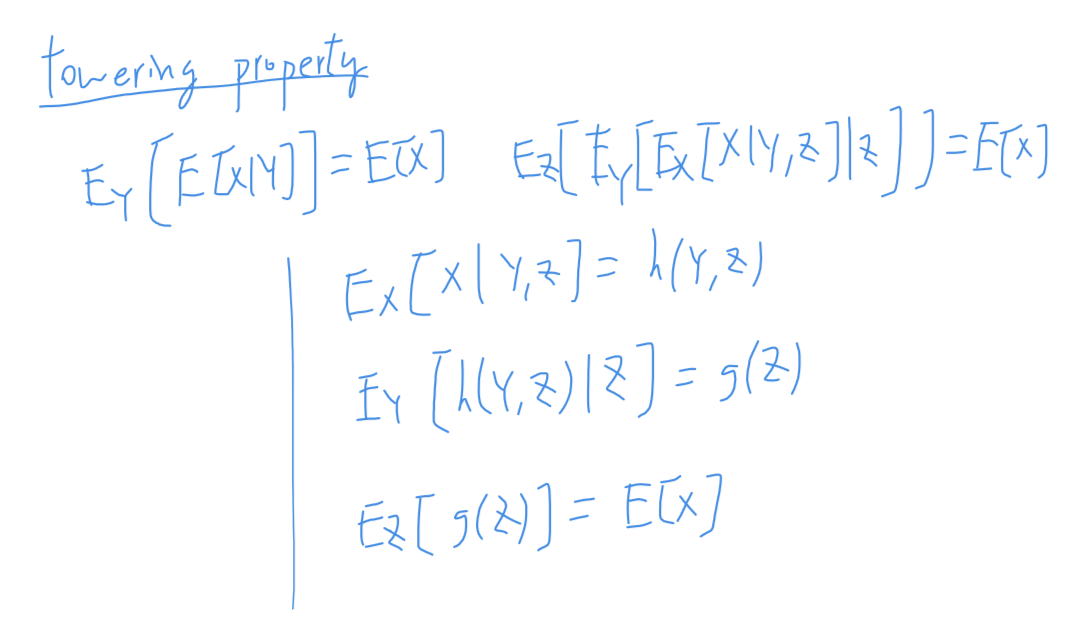 towering property
E_Y[E[X|Y]] = E[X]    E_Z[E_Y[E_X[X|Y,Z]|Z]] = E[X]
E_X[X|Y,Z] = h(Y,Z)
E_Y[h(Y,Z)|Z] = g(Z)
E_Z[g(Z)] = E[X]